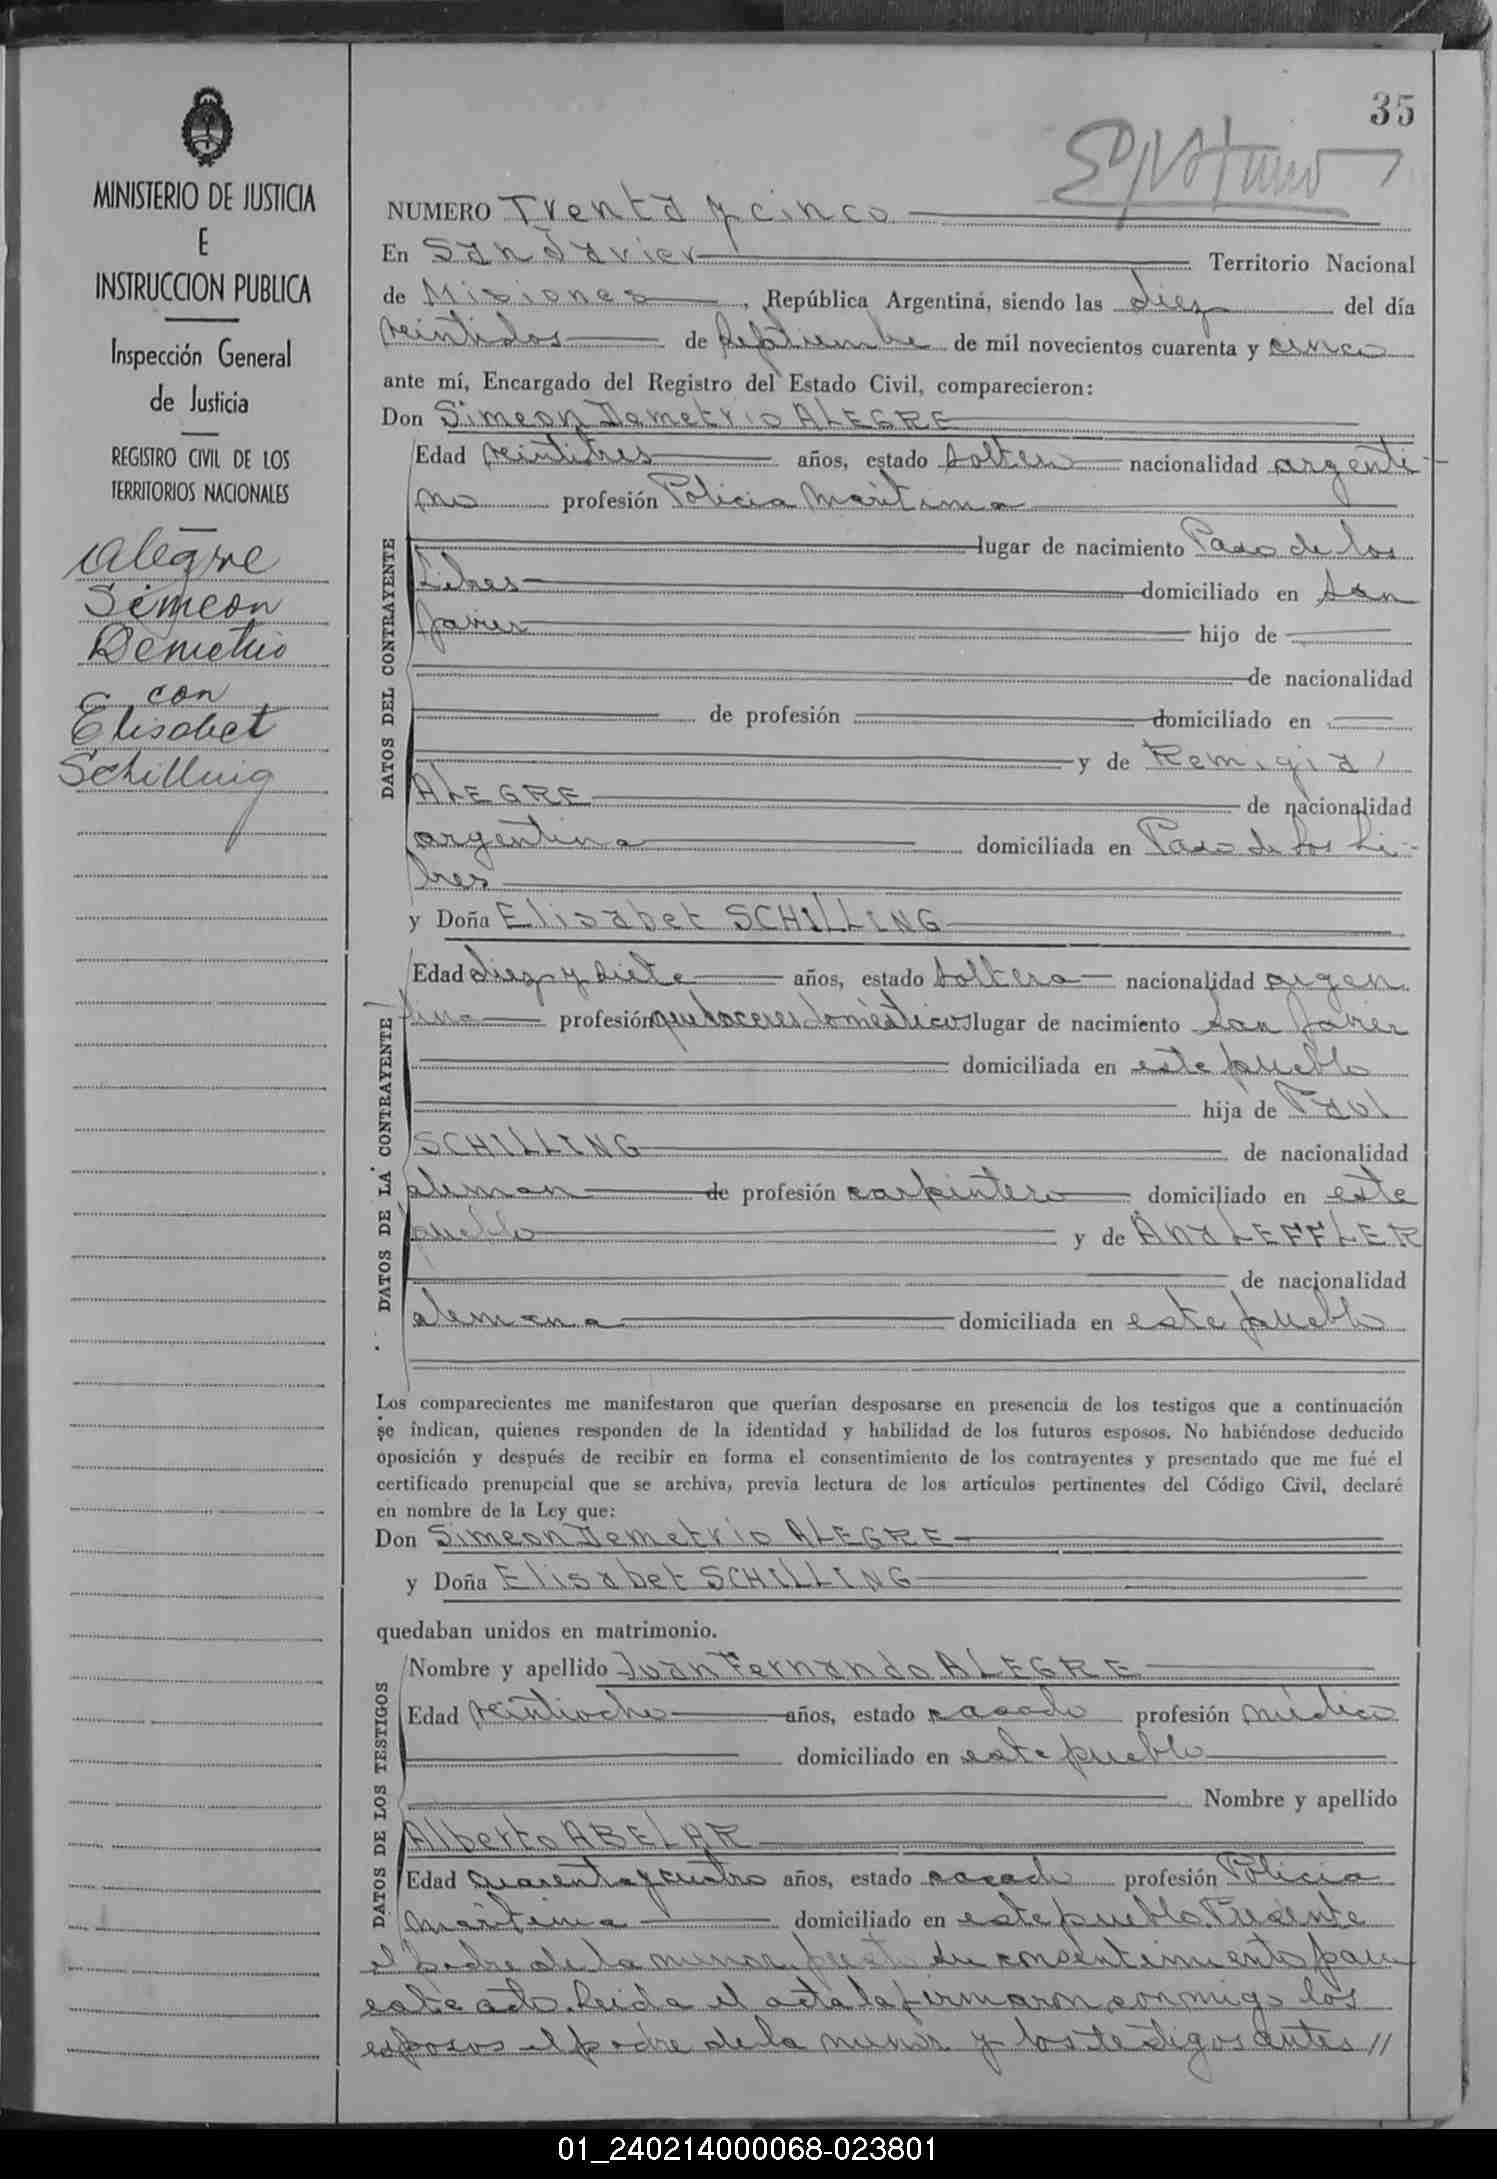 35
MINISTERIO DE JUSTICIA
E
INSTRUCCION PUBLICA
Inspección General
de Justicia
REGISTRO CIVIL DE LOS
TERRITORIOS NACIONALES
Alegre
Simeon
Demetrio
con
Elisabet
Schilling
NUMERO Trenta y cinco
En San Javier Territorio Nacional
de Misiones, República Argentina, siendo las diez del día
veintidos de septiembre de mil novecientos cuarenta y cinco
ante mí, Encargado del Registro del Estado Civil, comparecieron:
Don Simeon Demetrio ALEGRE
DATOS DEL CONTRAYENTE
Edad veintitres años, estado soltero nacionalidad argenti-
no profesión Policia Maritima
lugar de nacimiento Paso de los
Libres domiciliado en San
Javier hijo de
de nacionalidad
de profesión domiciliado en
y de Remigia
ALEGRE de nacionalidad
argentina domiciliada en Paso de los Li-
bres
y Doña Elisabet SCHILLING
DATOS DE LA CONTRAYENTE
Edad diez y siete años, estado soltera nacionalidad argen
tina profesión quehaceres domésticos lugar de nacimiento San Javier
domiciliada en este pueblo
hija de Paul
SCHILLING de nacionalidad
aleman de profesión carpintero domiciliado en este
pueblo y de Ana LEFFLER
de nacionalidad
alemana domiciliada en este pueblo
Los comparecientes me manifestaron que querían desposarse en presencia de los testigos que a continuación
se indican, quienes responden de la identidad y habilidad de los futuros esposos. No habiéndose deducido
oposición y después de recibir en forma el consentimiento de los contrayentes y presentado que me fué el
certificado prenupcial que se archiva, previa lectura de los artículos pertinentes del Código Civil, declaré
en nombre de la Ley que:
Don Simeon Demetrio ALEGRE
y Doña Elisabet SCHILLING
quedaban unidos en matrimonio.
DATOS DE LOS TESTIGOS
Nombre y apellido Juan Fernando ALEGRE
Edad veintiocho años, estado casado profesión médico
domiciliado en este pueblo
Nombre y apellido
Alberto ABELAR
Edad cuarenta y cuatro años, estado casado profesión Policia
Maritima domiciliado en este pueblo. Presente
el padre de la menor su consentimiento para
este acto. Leida el acta la firmaron conmigo los
esposos el padre de la menor y los testigos antes //
01_240214000068-023801